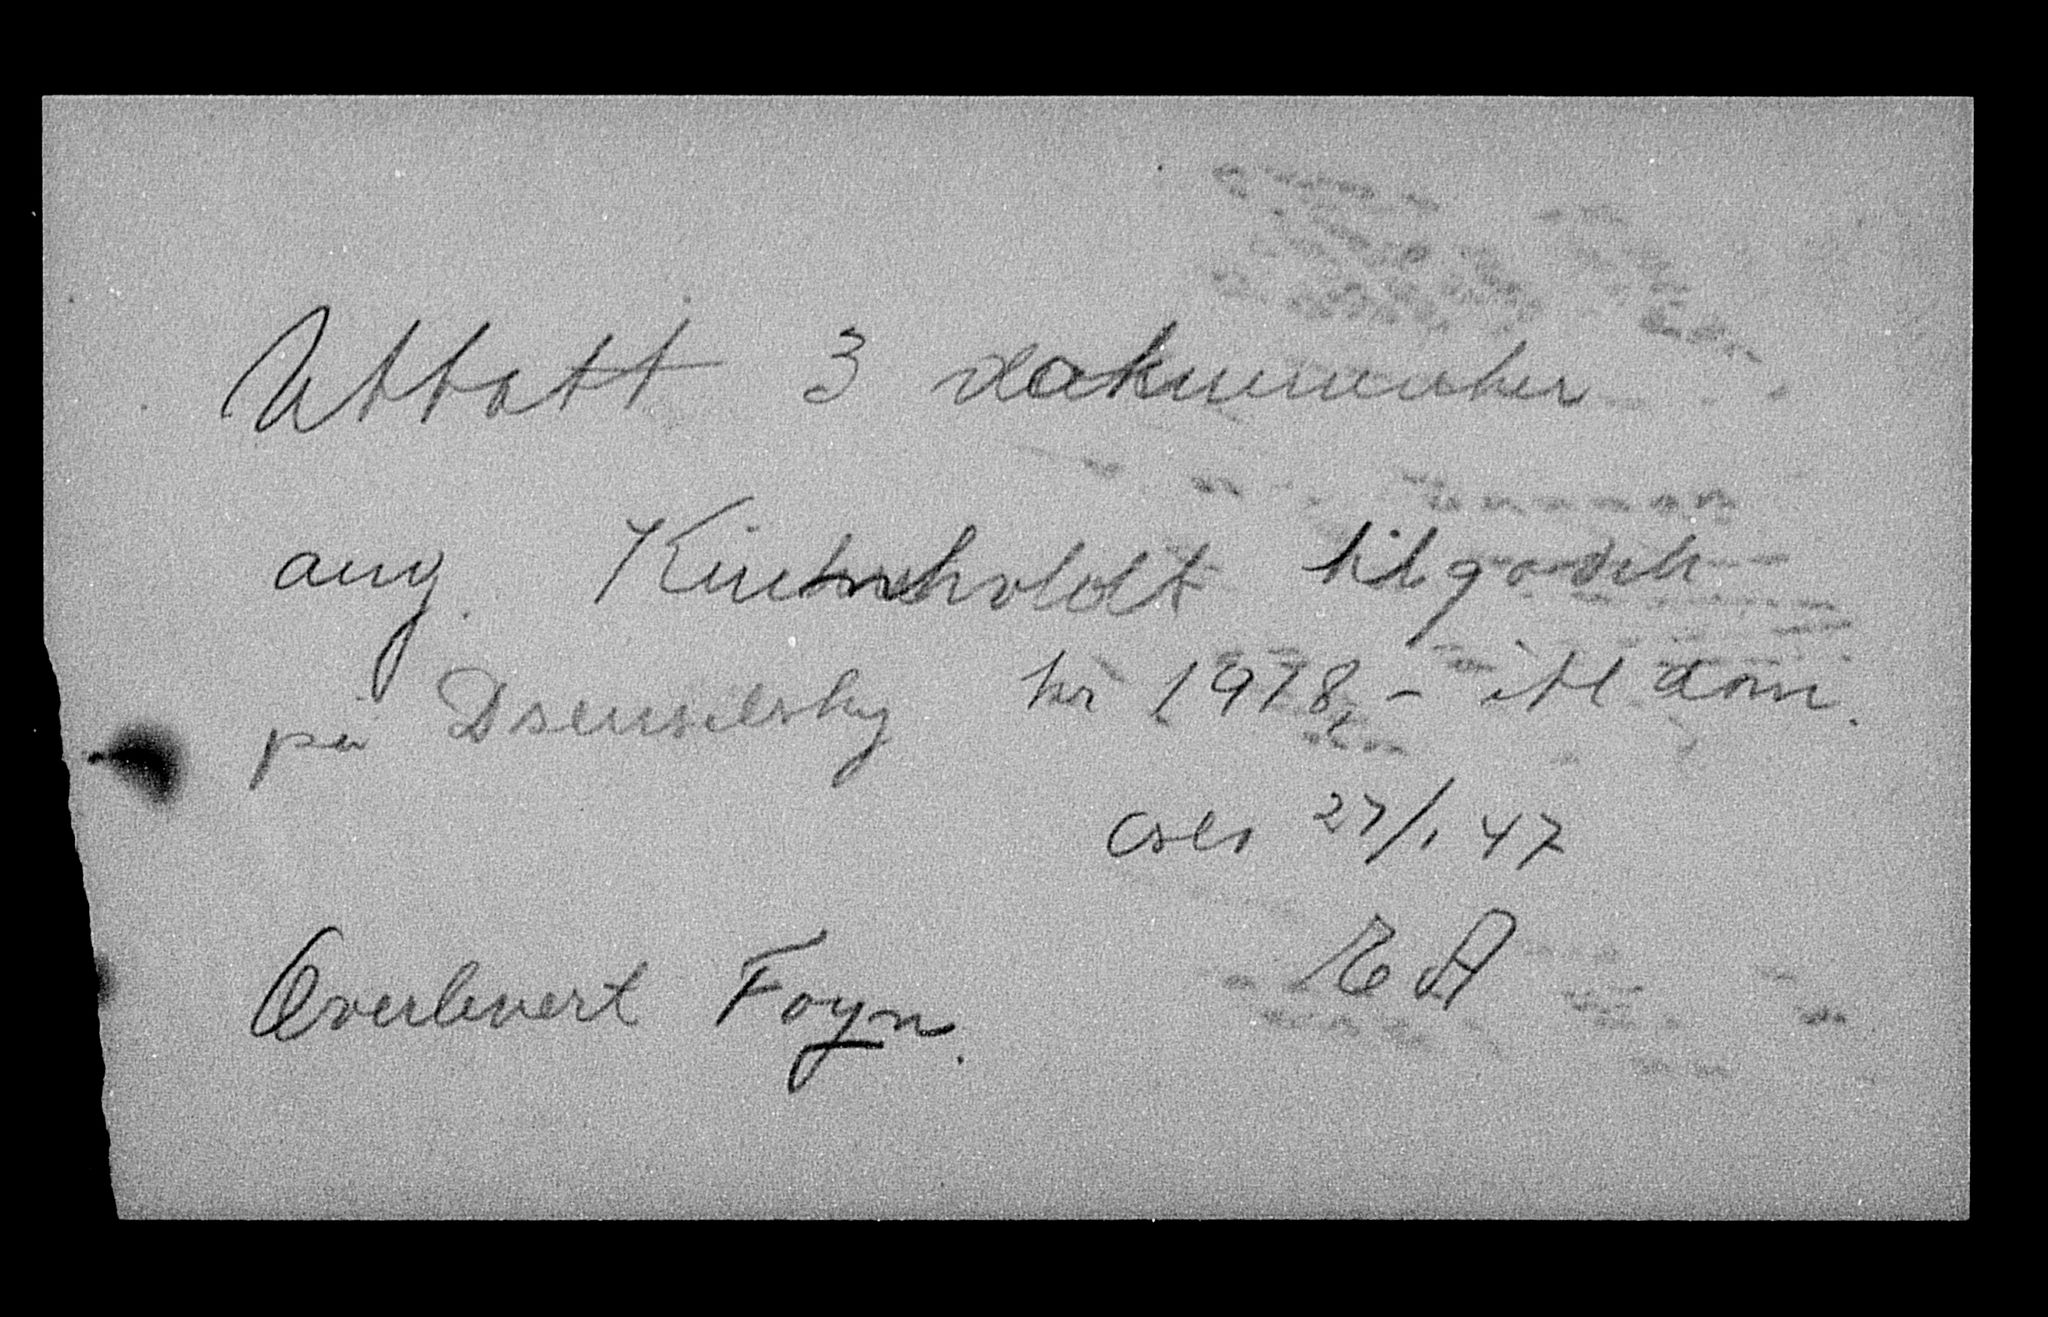 Uttatt 3 dokumenter
ang. tilgodeh
på kr 1978,- itl dom.
Oslo 27/1 47
EA
Overlevert Foyn.